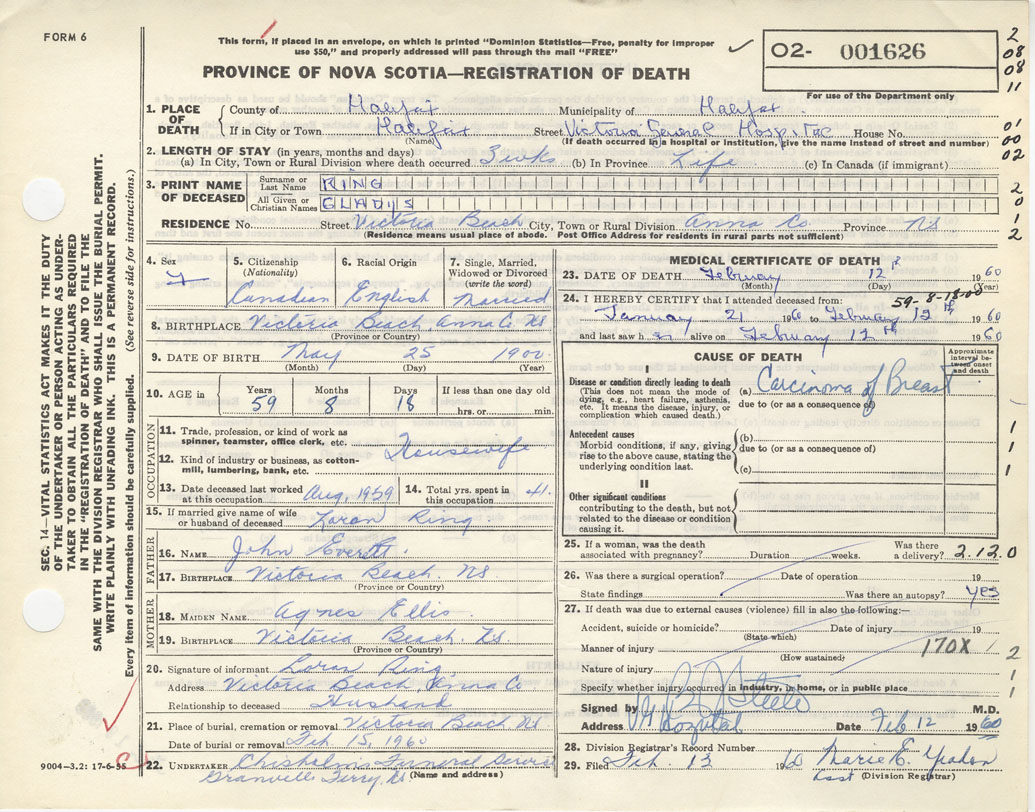 FORM 6
This form, if placed in an envelope, on which is printed "Dominion Statistics—Free, penalty for improper
use $50," and properly addressed will pass through the mail "FREE"
PROVINCE OF NOVA SCOTIA—REGISTRATION OF DEATH
02- 001626
For use of the Department only
2
08
08
11
SEC. 14—VITAL STATISTICS ACT MAKES IT THE DUTY
OF THE UNDERTAKER OR PERSON ACTING AS UNDER-
TAKER TO OBTAIN ALL THE PARTICULARS REQUIRED
IN THE "REGISTRATION OF DEATH" AND TO FILE THE
SAME WITH THE DIVISION REGISTRAR WHO SHALL ISSUE THE BURIAL PERMIT.
WRITE PLAINLY WITH UNFADING INK. THIS IS A PERMANENT RECORD.
Every item of information should be carefully supplied. (See reverse side for instructions.)
1. PLACE OF DEATH County of Halifax Municipality of Halifax
If in City or Town Halifax Street Victoria General Hospital House No.
(Name) (If death occurred in a hospital or institution, give the name instead of street and number)
01
00
02
2. LENGTH OF STAY (in years, months and days)
(a) In City, Town or Rural Division where death occurred 3 wks (b) In Province Life (c) In Canada (if immigrant)
3. PRINT NAME OF DECEASED
Surname or Last Name RING
All Given or Christian Names GLADYS
2
0
1
2
RESIDENCE No. Street Victoria Beach City, Town or Rural Division Anna Co Province NS
(Residence means usual place of abode. Post Office Address for residents in rural parts not sufficient)
4. Sex F
5. Citizenship (Nationality) Canadian
6. Racial Origin English
7. Single, Married, Widowed or Divorced (write the word) Married
8. BIRTHPLACE Victoria Beach, Anna Co NS
(Province or Country)
9. DATE OF BIRTH May 25 1900
(Month) (Day) (Year)
10. AGE in Years 59 Months 8 Days 18 If less than one day old hrs. or min.
OCCUPATION
11. Trade, profession, or kind of work as spinner, teamster, office clerk, etc. Housewife
12. Kind of industry or business, as cotton-mill, lumbering, bank, etc.
13. Date deceased last worked at this occupation Aug, 1959
14. Total yrs. spent in this occupation 41.
15. If married give name of wife or husband of deceased Loran Ring
FATHER
16. NAME John Everett
17. BIRTHPLACE Victoria Beach. NS
(Province or Country)
MOTHER
18. MAIDEN NAME Agnes Ellis
19. BIRTHPLACE Victoria Beach. NS.
(Province or Country)
20. Signature of informant Loran Ring
Address Victoria Beach, Anna Co
Relationship to deceased Husband
21. Place of burial, cremation or removal Victoria Beach. NS
Date of burial or removal Feb. 15, 1960
22. UNDERTAKER Chisholm's Funeral Service
Granville Ferry, NS (Name and address)
9004-3.2: 17-6-55
MEDICAL CERTIFICATE OF DEATH
23. DATE OF DEATH February 12 1960
(Month) (Day) (Year)
59-8-18
24. I HEREBY CERTIFY that I attended deceased from:
January 21 1960 to February 12 1960
and last saw h alive on February 12th 1960
CAUSE OF DEATH
Approximate interval between onset and death
I
Disease or condition directly leading to death
(This does not mean the mode of dying, e.g., heart failure, asthenia, etc. It means the disease, injury, or complication which caused death.)
(a) Carcinoma of Breast
due to (or as a consequence of)
Antecedent causes
Morbid conditions, if any, giving rise to the above cause, stating the underlying condition last.
(b)
due to (or as a consequence of)
(c)
1
1
1
II
Other significant conditions
contributing to the death, but not related to the disease or condition causing it.
25. If a woman, was the death associated with pregnancy? Duration weeks. Was there a delivery? 2.12.0
26. Was there a surgical operation? Date of operation 19
State findings Was there an autopsy? yes
27. If death was due to external causes (violence) fill in also the following:—
Accident, suicide or homicide? Date of injury 19
(State which)
Manner of injury 170X
(How sustained)
Nature of injury
Specify whether injury occurred in industry, in home, or in public place
1
2
1
1
Signed by Steele M.D.
Address VG Hospital Date Feb 12 1960
28. Division Registrar's Record Number
29. Filed Feb. 13 1960 Marie E.
Dast (Division Registrar)